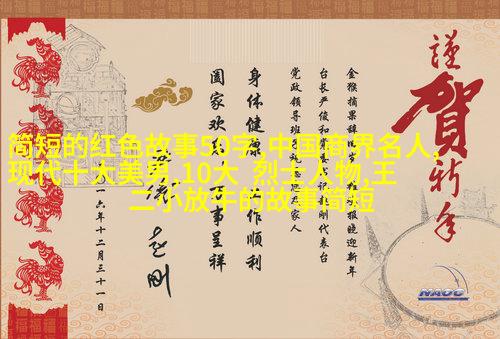 简短的红色故事50字,中国商界名人,
现代十大美男,10大 烈士人物,王
二小放牛的故事简短
謹賀新年
金猴摘果辞旧岁 报晓迎新年
台长严俊和党委书记赵刚代表台
党政领导班子 家人
身体健康 工作顺利
阖家欢乐 万事呈祥
赵刚
一六年十二月三十一日
NAOC